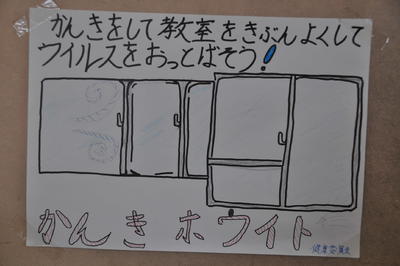 かんきをして教室をきぶんよくして
ウイルスをおっとばそう!
かんき ホワイト
健康委員会